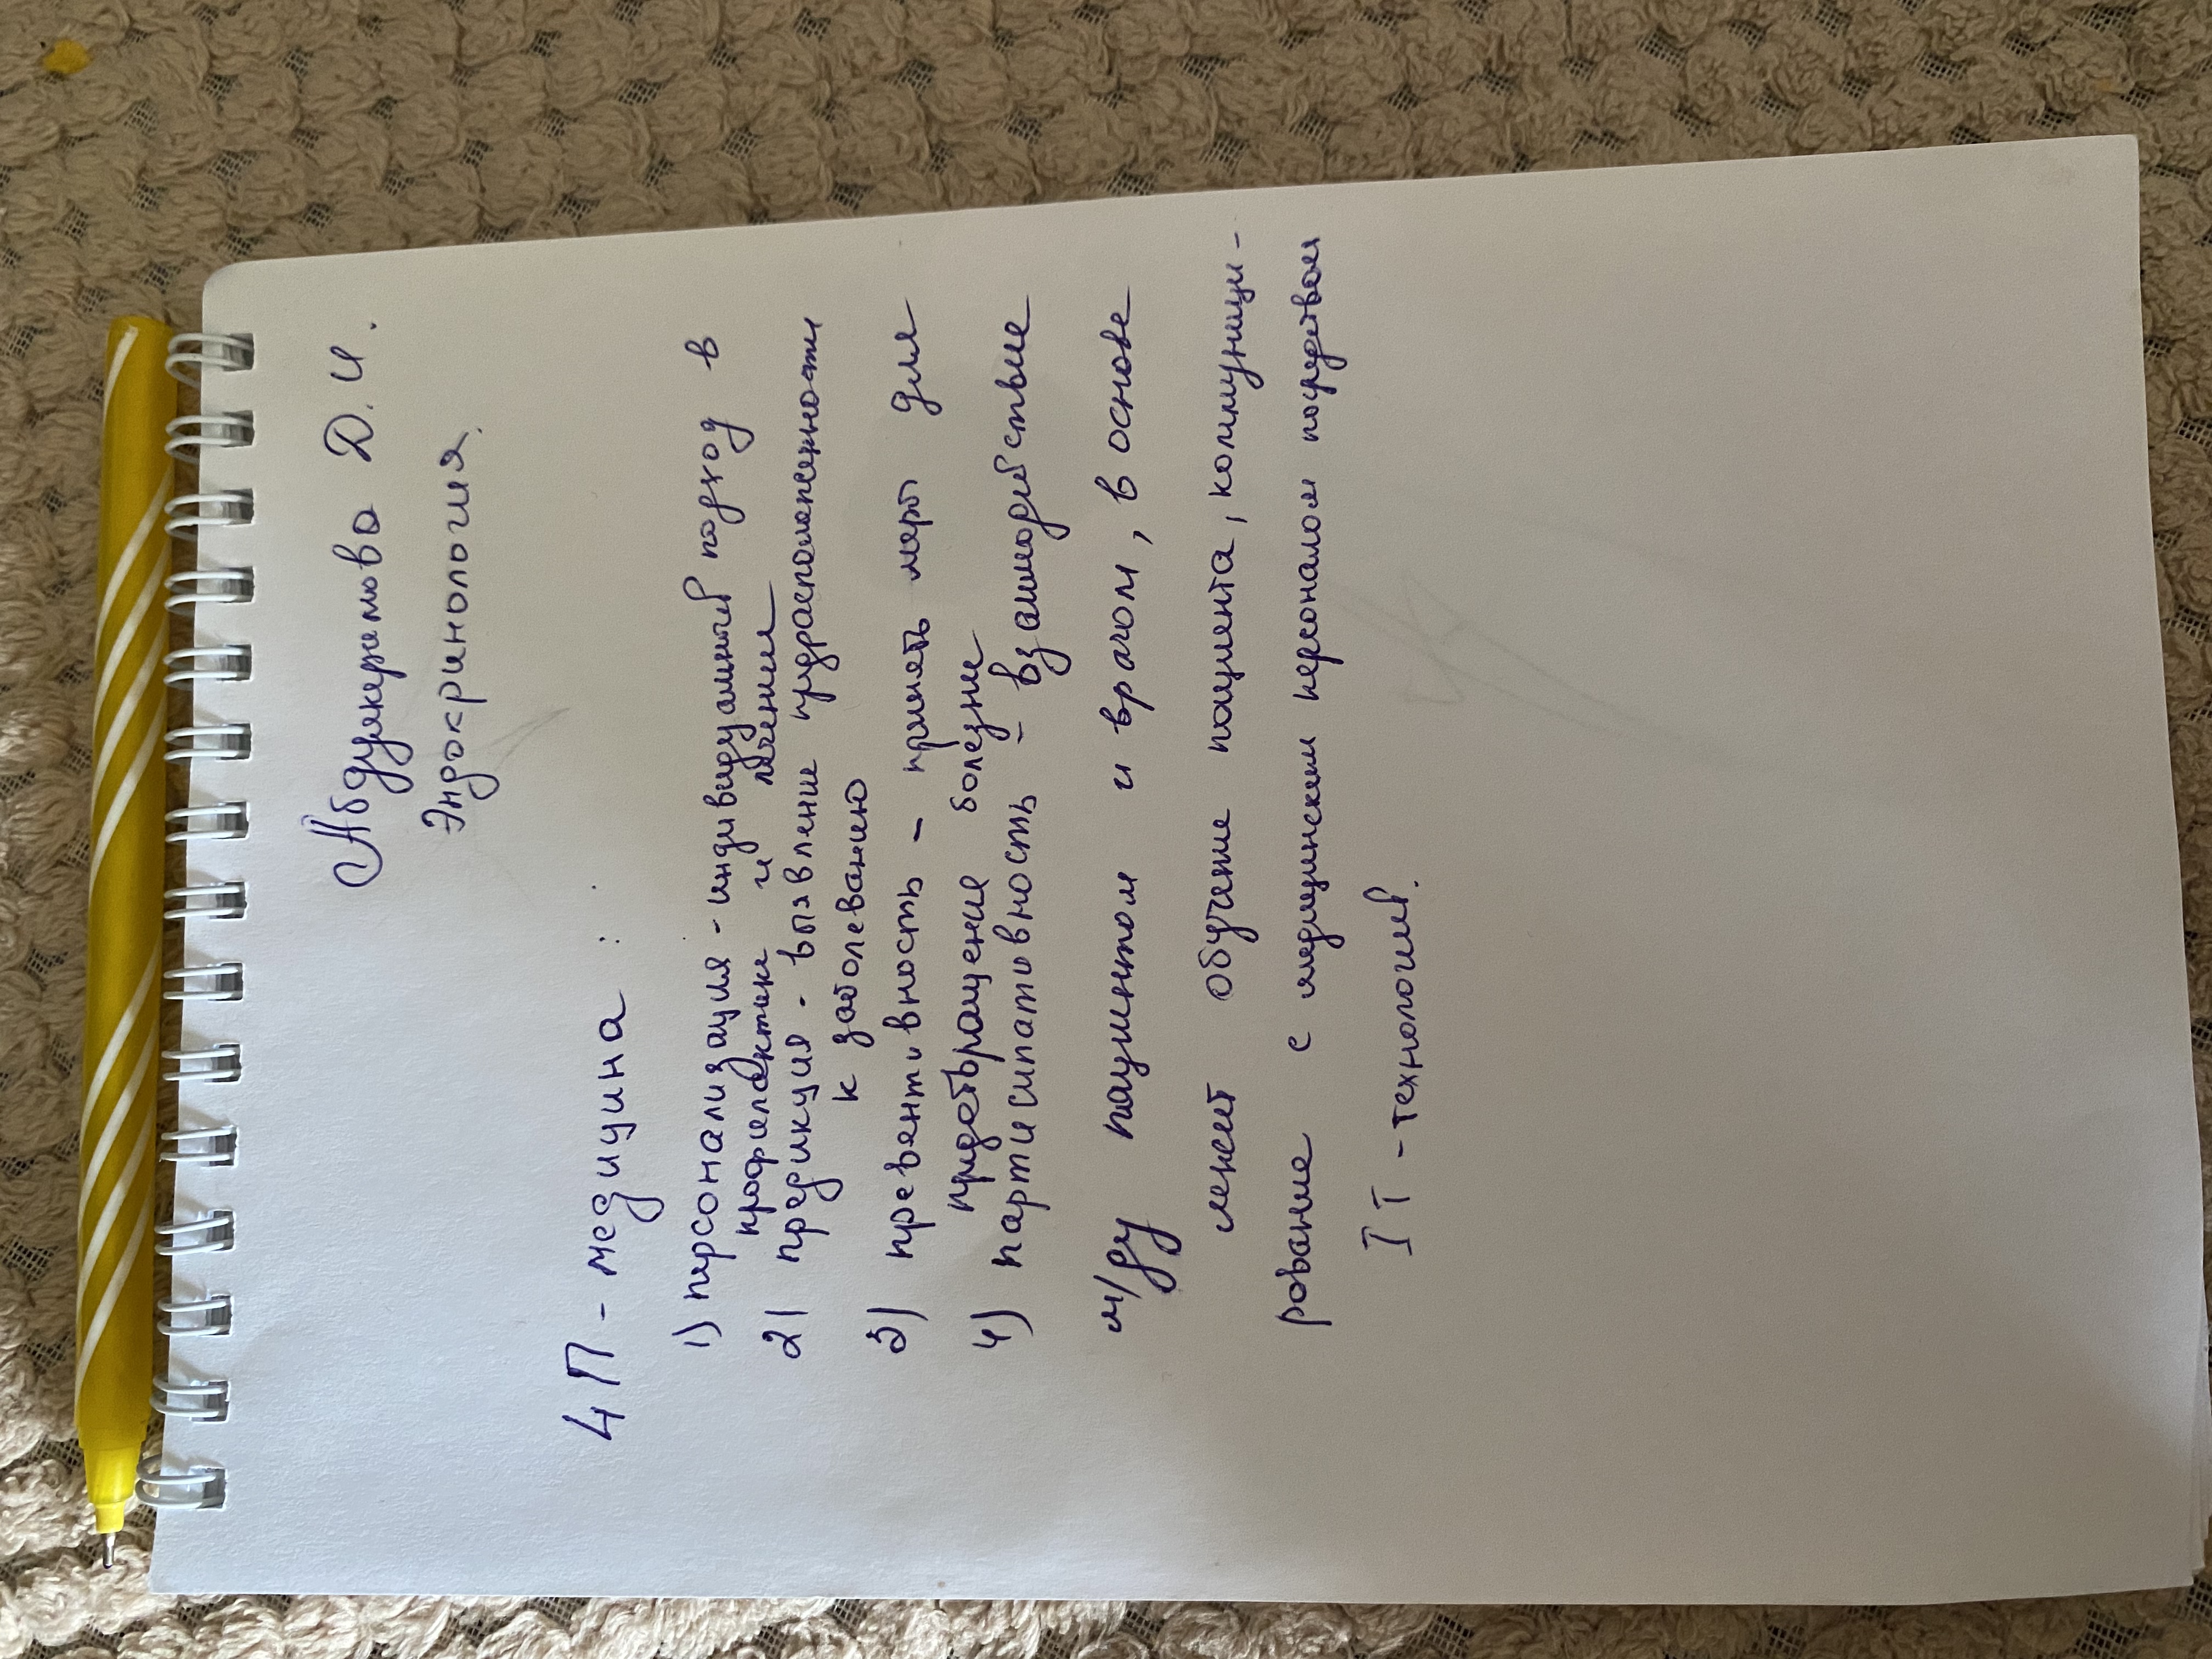 Абдулкеримова Д.И.
Эндокринология.
4П - медицина :
1) персонализация - индивидуалный подход в
профилактике и лечении
2) предикция - выявление предрасположенности
к заболеванию
3) превентивность - принять меры для
предотвращения болезни
4) партисипативность - взаимодействие
м/ду пациентом и врачом, в основе
лежит обучение пациента, коммуници-
рование с медицинским персоналом посредством
IT - технологий.